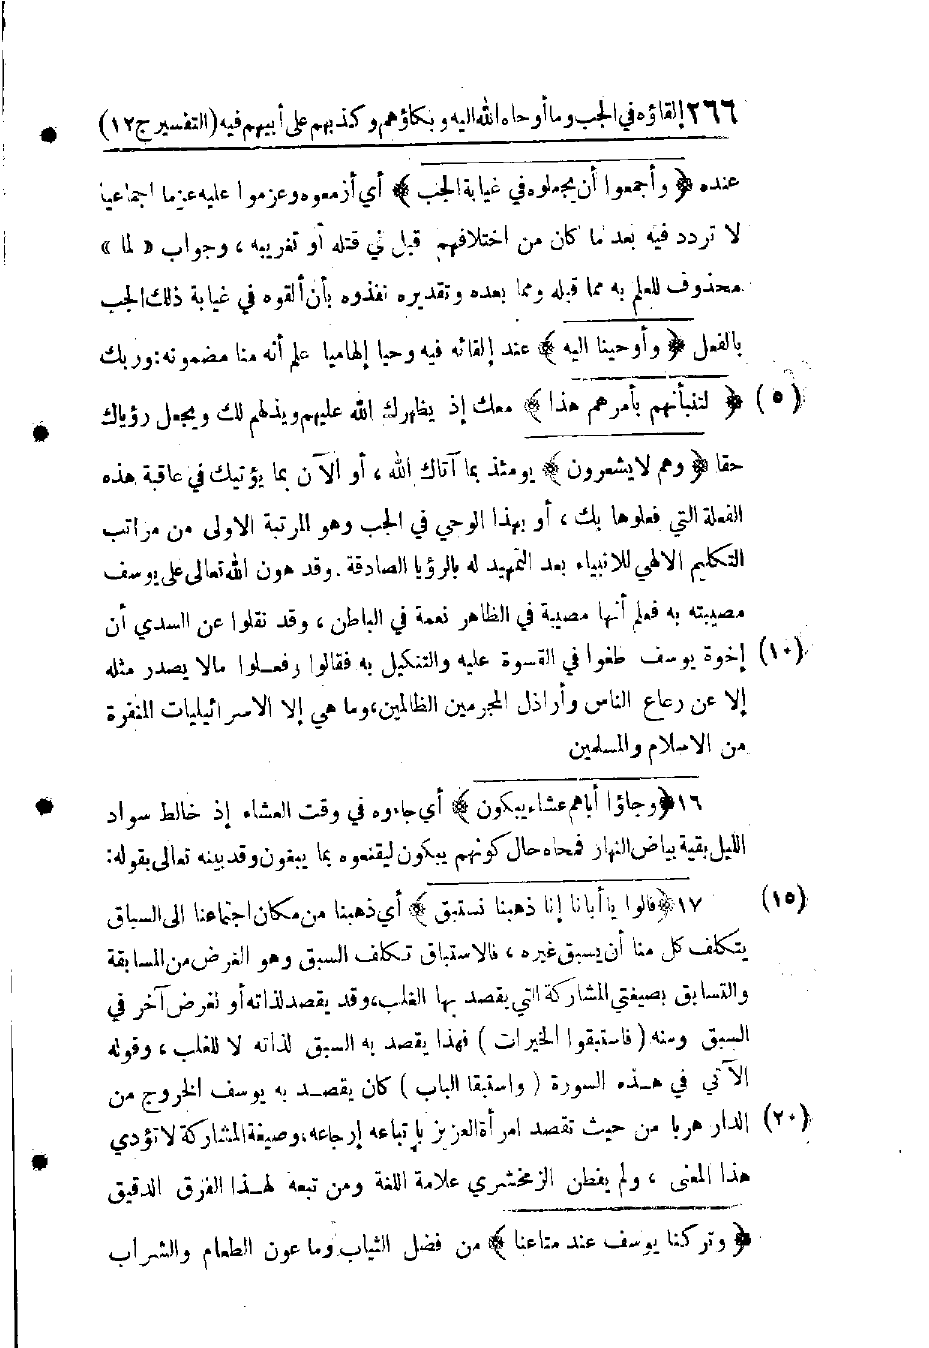 ٢٦٦ إلقاؤه في الجب وما أوحاه الله اليه وبكاؤهم وكذبهم على أبيهم فيه (التفسير ج ١٢)
عنده ﴿ وأجمعوا أن يجعلوه في غيابة الجب ﴾ أي أزمعوه وعزموا عليه عزما اجماعيا
لا تردد فيه بعد ما كان من اختلافهم قبل في قتله أو تغريبه ، وجواب « لما »
محذوف للعلم به مما قبله ومما بعده وتقديره نفذوه بأن ألقوه في غيابة ذلك الجب
بالفعل ﴿ وأوحينا اليه ﴾ عند إلقائه فيه وحيا إلهاميا علم أنه منا مضمونه: وربك
(٥) ﴿ لتنبأنهم بأمرهم هذا ﴾ معك إذ يظهرك الله عليهم ويذلهم لك ويجعل رؤياك
حقا ﴿ وهم لا يشعرون ﴾ يومئذ بما آتاك الله ، أو الآن بما يؤتيك في عاقبة هذه
الفعلة التي فعلوها بك ، أو بهذا الوحي في الجب وهو المرتبة الاولى من مراتب
التكليم الالهي للانبياء بعد التمهيد له بالرؤيا الصادقة . وقد هون الله تعالى على يوسف
مصيبته به فعلم أنها مصيبة في الظاهر نعمة في الباطن ، وقد نقلوا عن السدي أن
(١٠) إخوة يوسف طغوا في القسوة عليه والتنكيل به فقالوا وفعلوا مالا يصدر مثله
إلا عن رعاع الناس وأراذل المجرمين الظالمين، وما هي إلا الاسرائيليات المنفرة
من الاسلام والمسلمين
١٦ ﴿ وجاؤا أباهم عشاء يبكون ﴾ أي جاءوه في وقت العشاء إذ خالط سواد
الليل بقية بياض النهار فمحاه حال كونهم يبكون ليقنعوه بما يبغون وقد بينه تعالى بقوله:
(١٥) ١٧ ﴿ قالوا يا أبانا إنا ذهبنا نستبق ﴾ أي ذهبنا من مكان اجتماعنا الى السباق
يتكلف كل منا أن يسبق غيره ، فالاستباق تكلف السبق وهو الغرض من المسابقة
والتسابق بصيغتي المشاركة التي يقصد بها الغلب، وقد يقصد لذاته أو لغرض آخر في
السبق ومنه ( فاستبقوا الخيرات ) فهذا يقصد به السبق لذاته لا للغلب ، وقوله
الآتي في هذه السورة ( واستبقا الباب ) كان يقصد به يوسف الخروج من
(٢٠) الدار هربا من حيث تقصد امرأة العزيز بإتباعه إرجاعه، وصيغة المشاركة لا تؤدي
هذا المعنى ، ولم يفطن الزمخشري علامة اللغة ومن تبعه لهذا الفرق الدقيق
﴿ وتركنا يوسف عند متاعنا ﴾ من فضل الثياب وماعون الطعام والشراب